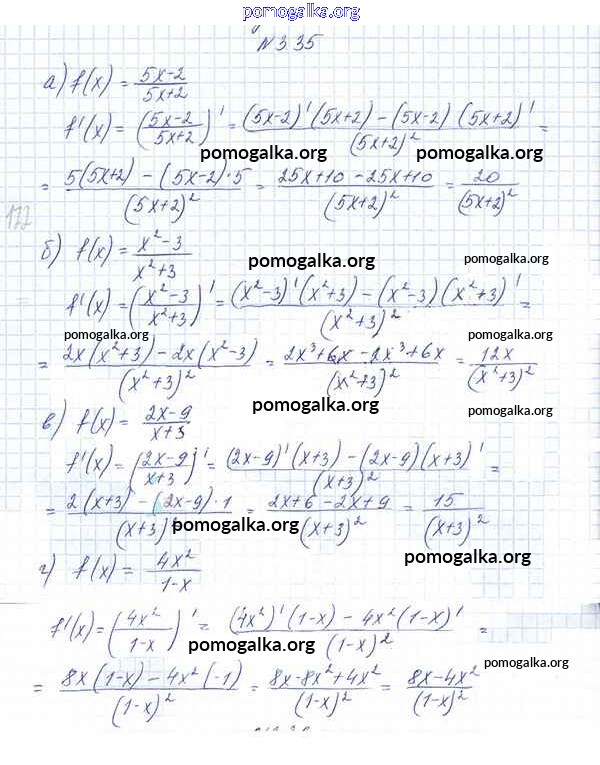 pomogalka.org
N 335
а) f(x) = (5x-2)/(5x+2)
f'(x) = ((5x-2)/(5x+2))' = ((5x-2)'(5x+2) - (5x-2)(5x+2)')/(5x+2)² =
pomogalka.org pomogalka.org
= (5(5x+2) - (5x-2)·5)/(5x+2)² = (25x+10-25x+10)/(5x+2)² = 20/(5x+2)²
112
б) f(x) = (x²-3)/(x²+3)
pomogalka.org pomogalka.org
f'(x) = ((x²-3)/(x²+3))' = ((x²-3)'(x²+3) - (x²-3)(x²+3)')/(x²+3)² =
pomogalka.org pomogalka.org
= (2x(x²+3) - 2x(x²-3))/(x²+3)² = (2x³+6x-2x³+6x)/(x²+3)² = 12x/(x²+3)²
pomogalka.org pomogalka.org
в) f(x) = (2x-9)/(x+3)
f'(x) = ((2x-9)/(x+3))' = ((2x-9)'(x+3) - (2x-9)(x+3)')/(x+3)² =
= (2(x+3) - (2x-9)·1)/(x+3)² = (2x+6-2x+9)/(x+3)² = 15/(x+3)²
pomogalka.org pomogalka.org
г) f(x) = 4x²/(1-x)
f'(x) = (4x²/(1-x))' = ((4x²)'(1-x) - 4x²(1-x)')/(1-x)² =
pomogalka.org pomogalka.org
= (8x(1-x) - 4x²(-1))/(1-x)² = (8x-8x²+4x²)/(1-x)² = (8x-4x²)/(1-x)²
pomogalka.org